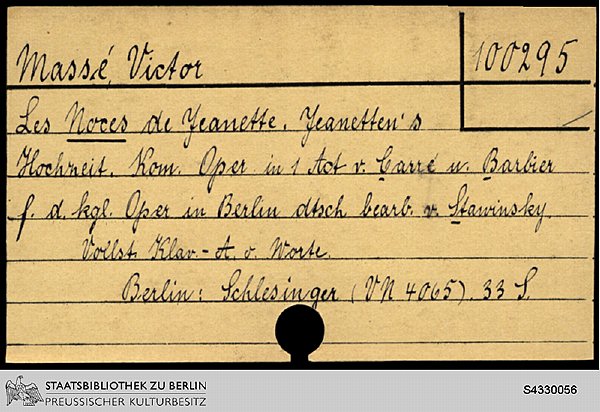 Massé, Victor
100295
Les Noces de Jeanette. Jeanetten's
Hochzeit. Kom. Oper in 1 Act v. Carré u. Barbier
f. d. kgl. Oper in Berlin dtsch bearb. v. Stawinsky.
Vollst. Klav.-A. o. Worte.
Berlin: Schlesinger (VN 4065). 33 S.
STAATSBIBLIOTHEK ZU BERLIN
PREUSSISCHER KULTURBESITZ
S4330056